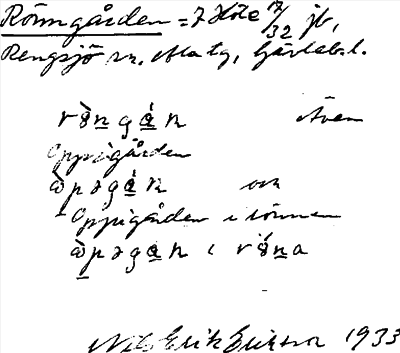 Rönngården = 7 Höle 12/32 jb,
Rengsjö sn. Alfta tg, Gävlebl.
rö̀ngán Även
Oppigården
òpəgán och
Oppigården i rönnen
òpəgan i rö́na
Nils Erik Eriksson 1933